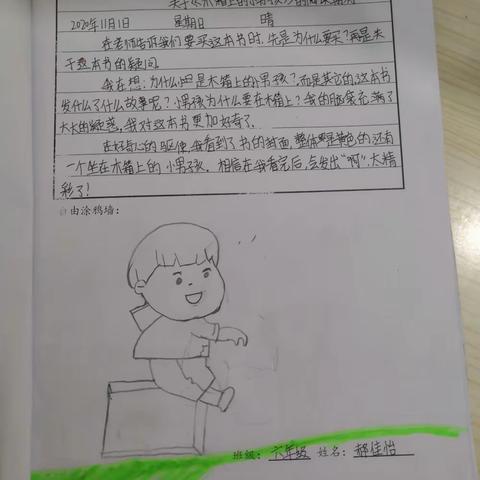 关于《木箱上的小男孩》的阅读期待
2020年11月1日 星期日 晴
在老师告诉我们要买这本书时,先是为什么要买?再是关
于这本书的疑问。
我在想:为什么叫是木箱上的小男孩?而是其它的,这本书
发什么了什么故事呢?小男孩为什么要在木箱上?我的脑袋充满了
大大的疑惑,我对这本书更加好奇了。
在好奇心的驱使,我看到了书的封面,整体都是黄色的,还有
一个坐在木箱上的小男孩,相信在我看完后,会发出“啊”,太精
彩了!
自由涂鸦墙:
班级:六年级 姓名:郝佳怡